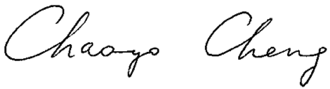 Chaoyo Cheng